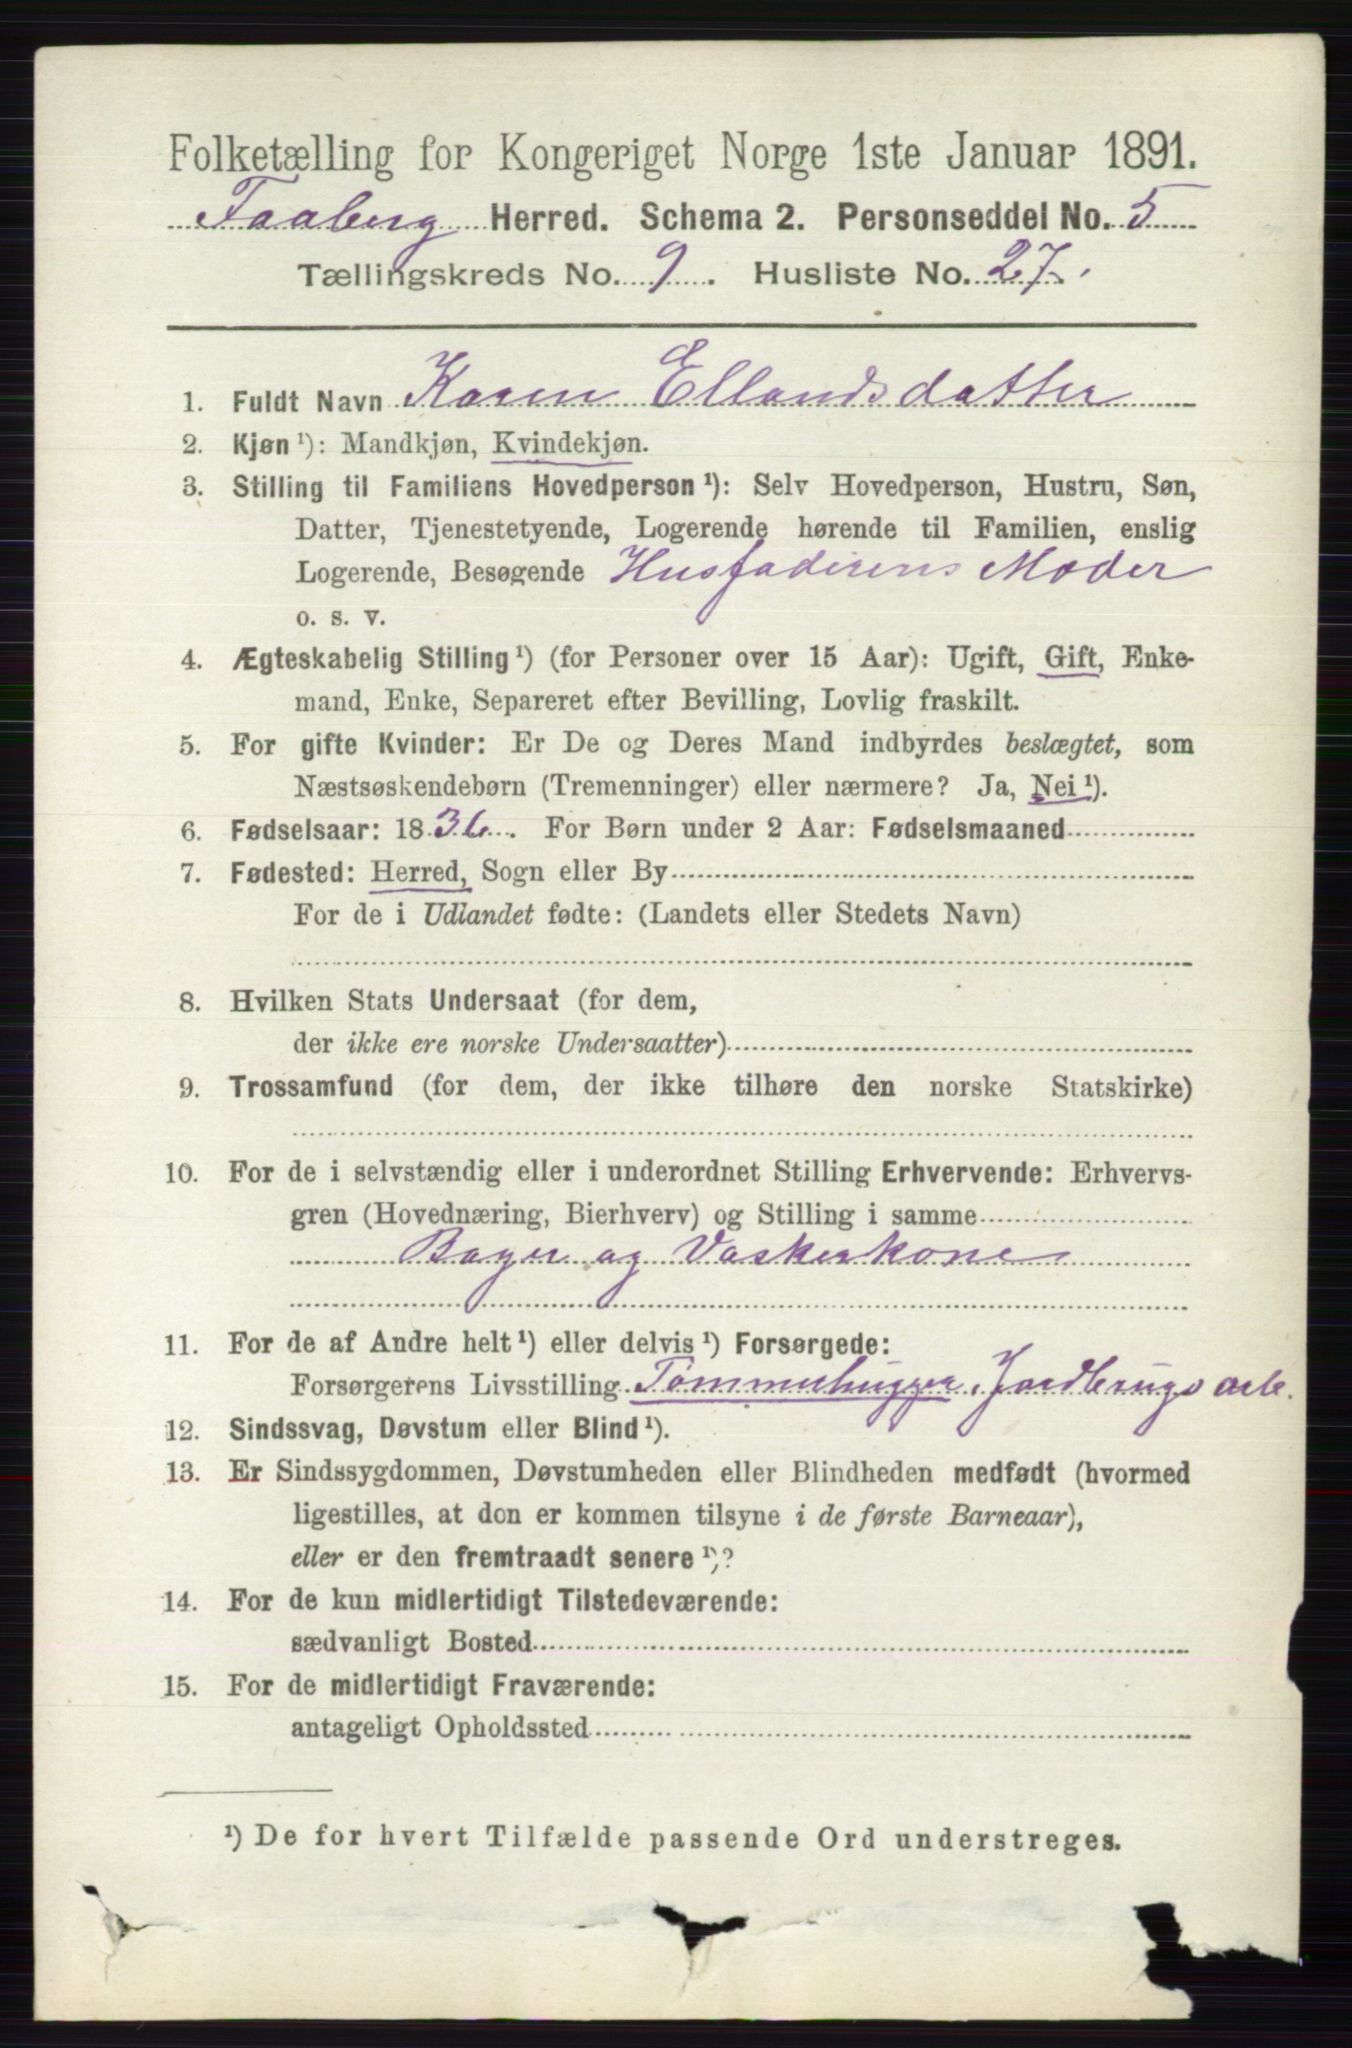 Folketælling for Kongeriget Norge 1ste Januar 1891.
Faaberg Herred. Schema 2. Personseddel No. 5
Tællingskreds No. 9. Husliste No. 27.
1. Fuldt Navn Karen Ellandsdatter
2. Kjøn ¹): Mandkjøn, Kvindekjøn.
3. Stilling til Familiens Hovedperson ¹): Selv Hovedperson, Hustru, Søn,
Datter, Tjenestetyende, Logerende hørende til Familien, enslig
Logerende, Besøgende Husfaderens Moder
o. s. v.
4. Ægteskabelig Stilling ¹) (for Personer over 15 Aar): Ugift, Gift, Enke-
mand, Enke, Separeret efter Bevilling, Lovlig fraskilt.
5. For gifte Kvinder: Er De og Deres Mand indbyrdes beslægtet, som
Næstsøskendebørn (Tremenninger) eller nærmere? Ja, Nei ¹).
6. Fødselsaar: 1836. For Børn under 2 Aar: Fødselsmaaned
7. Fødested: Herred, Sogn eller By
For de i Udlandet fødte: (Landets eller Stedets Navn)
8. Hvilken Stats Undersaat (for dem,
der ikke ere norske Undersaatter)
9. Trossamfund (for dem, der ikke tilhøre den norske Statskirke)
10. For de i selvstændig eller i underordnet Stilling Erhvervende: Erhvervs-
gren (Hovednæring, Bierhverv) og Stilling i samme
Bager og Vaskerkone
11. For de af Andre helt ¹) eller delvis ¹) Forsørgede:
Forsørgerens Livsstilling Tømmerhugger, Jordbrugsarb.
12. Sindssvag, Døvstum eller Blind ¹).
13. Er Sindssygdommen, Døvstumheden eller Blindheden medfødt (hvormed
ligestilles, at don er kommen tilsyne i de første Barneaar),
eller er den fremtraadt senere ¹)?
14. For de kun midlertidigt Tilstedeværende:
sædvanligt Bosted
15. For de midlertidigt Fraværende:
antageligt Opholdssted
¹) De for hvert Tilfælde passende Ord understreges.